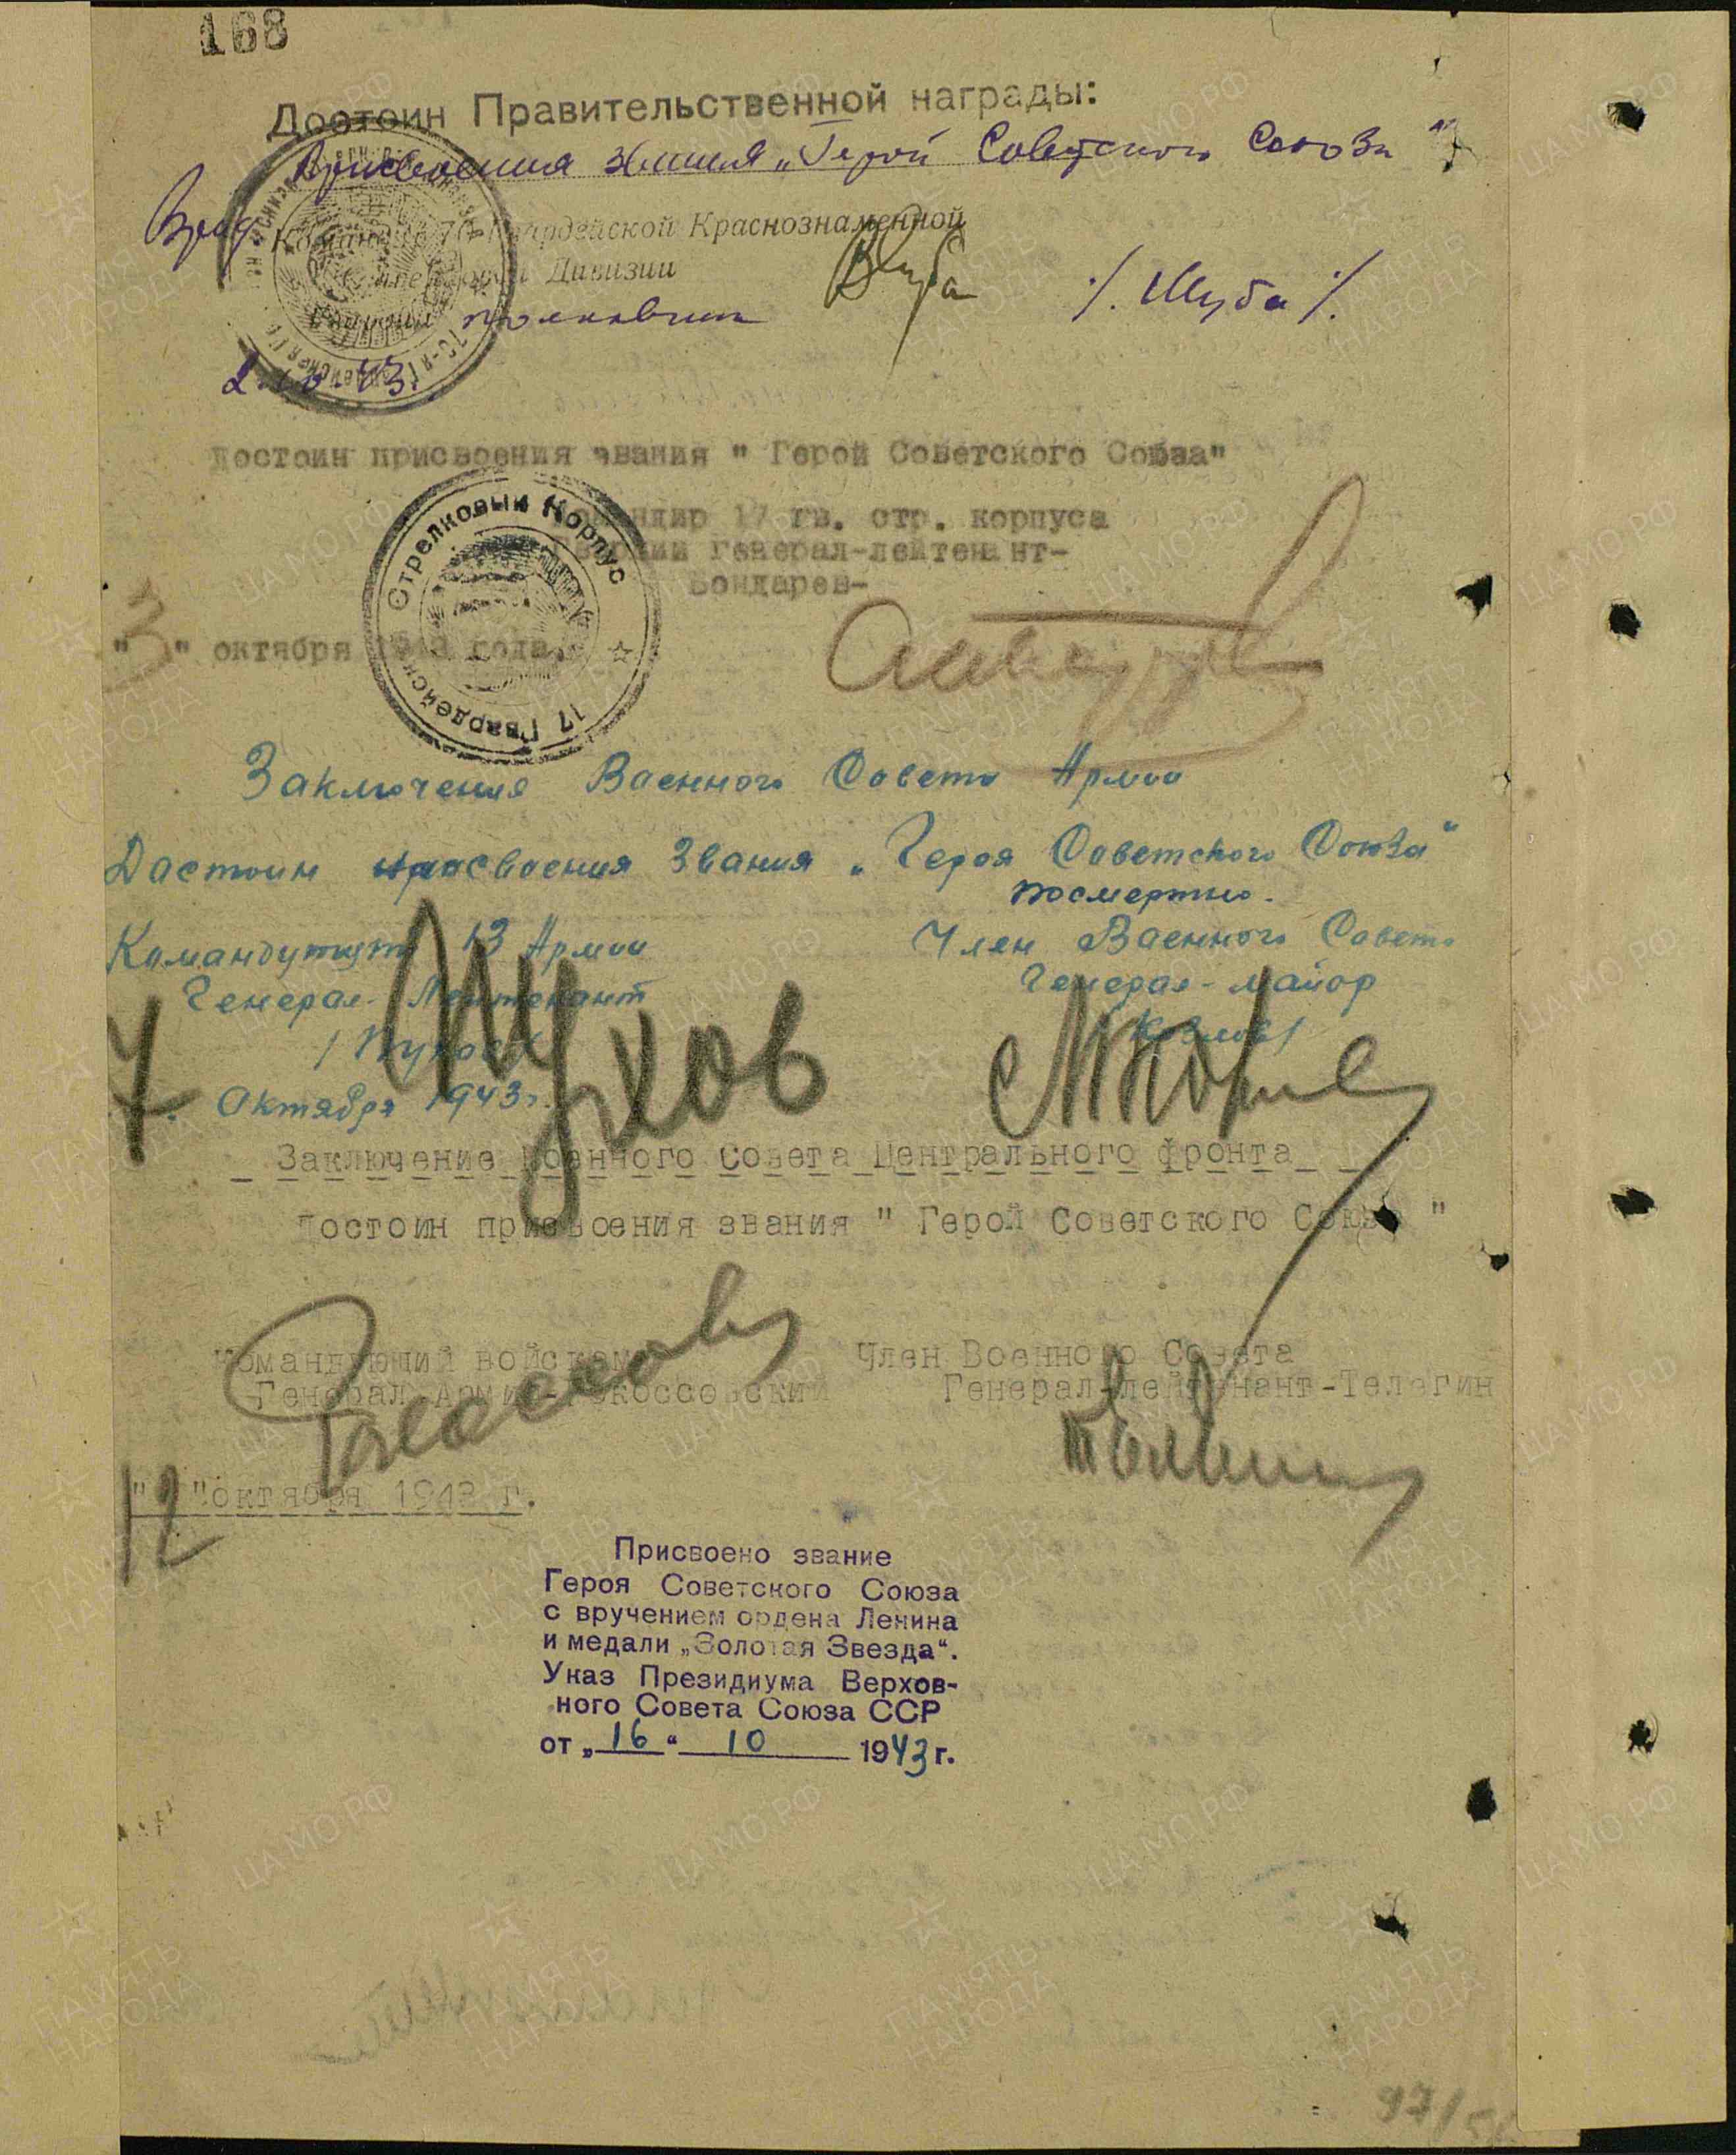 168
Достоин Правительственной награды:
Присвоения звания „Герой Советского Союза"
Врид. Командир 70 Гвардейской Краснознаменной
Стрелковой Дивизии
Гвардии полковник /. Шуба /.
2.10.43.
достоин присвоения звания " Герой Советского Союза"
Командир 17 гв. стр. корпуса
Гвардии генерал-лейтенант-
Бондарев-
Стрелковый Корпус
17 Гвардейск
"3" октября 1943 года.
Заключения Военного Совета Армии
Достоин присвоения Звания „Героя Советского Союза"
посмертно.
Командующий 13 Армии
Генерал-Лейтенант
/Пухов/
Пухов
7. Октября 1943г.
Член Военного Совета
Генерал-майор
/Козлов/
Заключение Военного Совета Центрального фронта
достоин присвоения звания " Герой Советского Союза "
Командующий войсками
Генерал Армии-Рокоссовский
Член Военного Совета
Генерал-лейтенант-Телегин
"12"октября 1943 г.
Присвоено звание
Героя Советского Союза
с вручением ордена Ленина
и медали „Золотая Звезда".
Указ Президиума Верхов-
ного Совета Союза ССР
от „16" 10 1943 г.
ЦА МО РФ
ПАМЯТЬ
НАРОДА